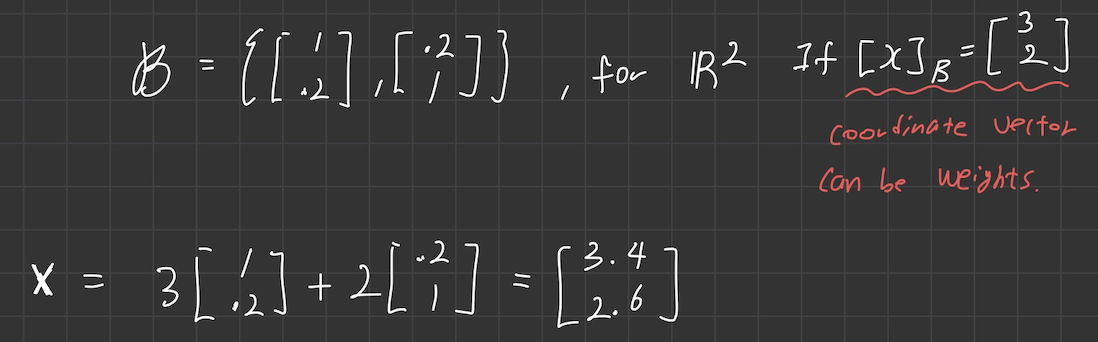 B = {[1 .2], [.2 1]}, for ℝ² If [x]_B = [3 2]
coordinate vector
can be weights.
x = 3[1 .2] + 2[.2 1] = [3.4 2.6]